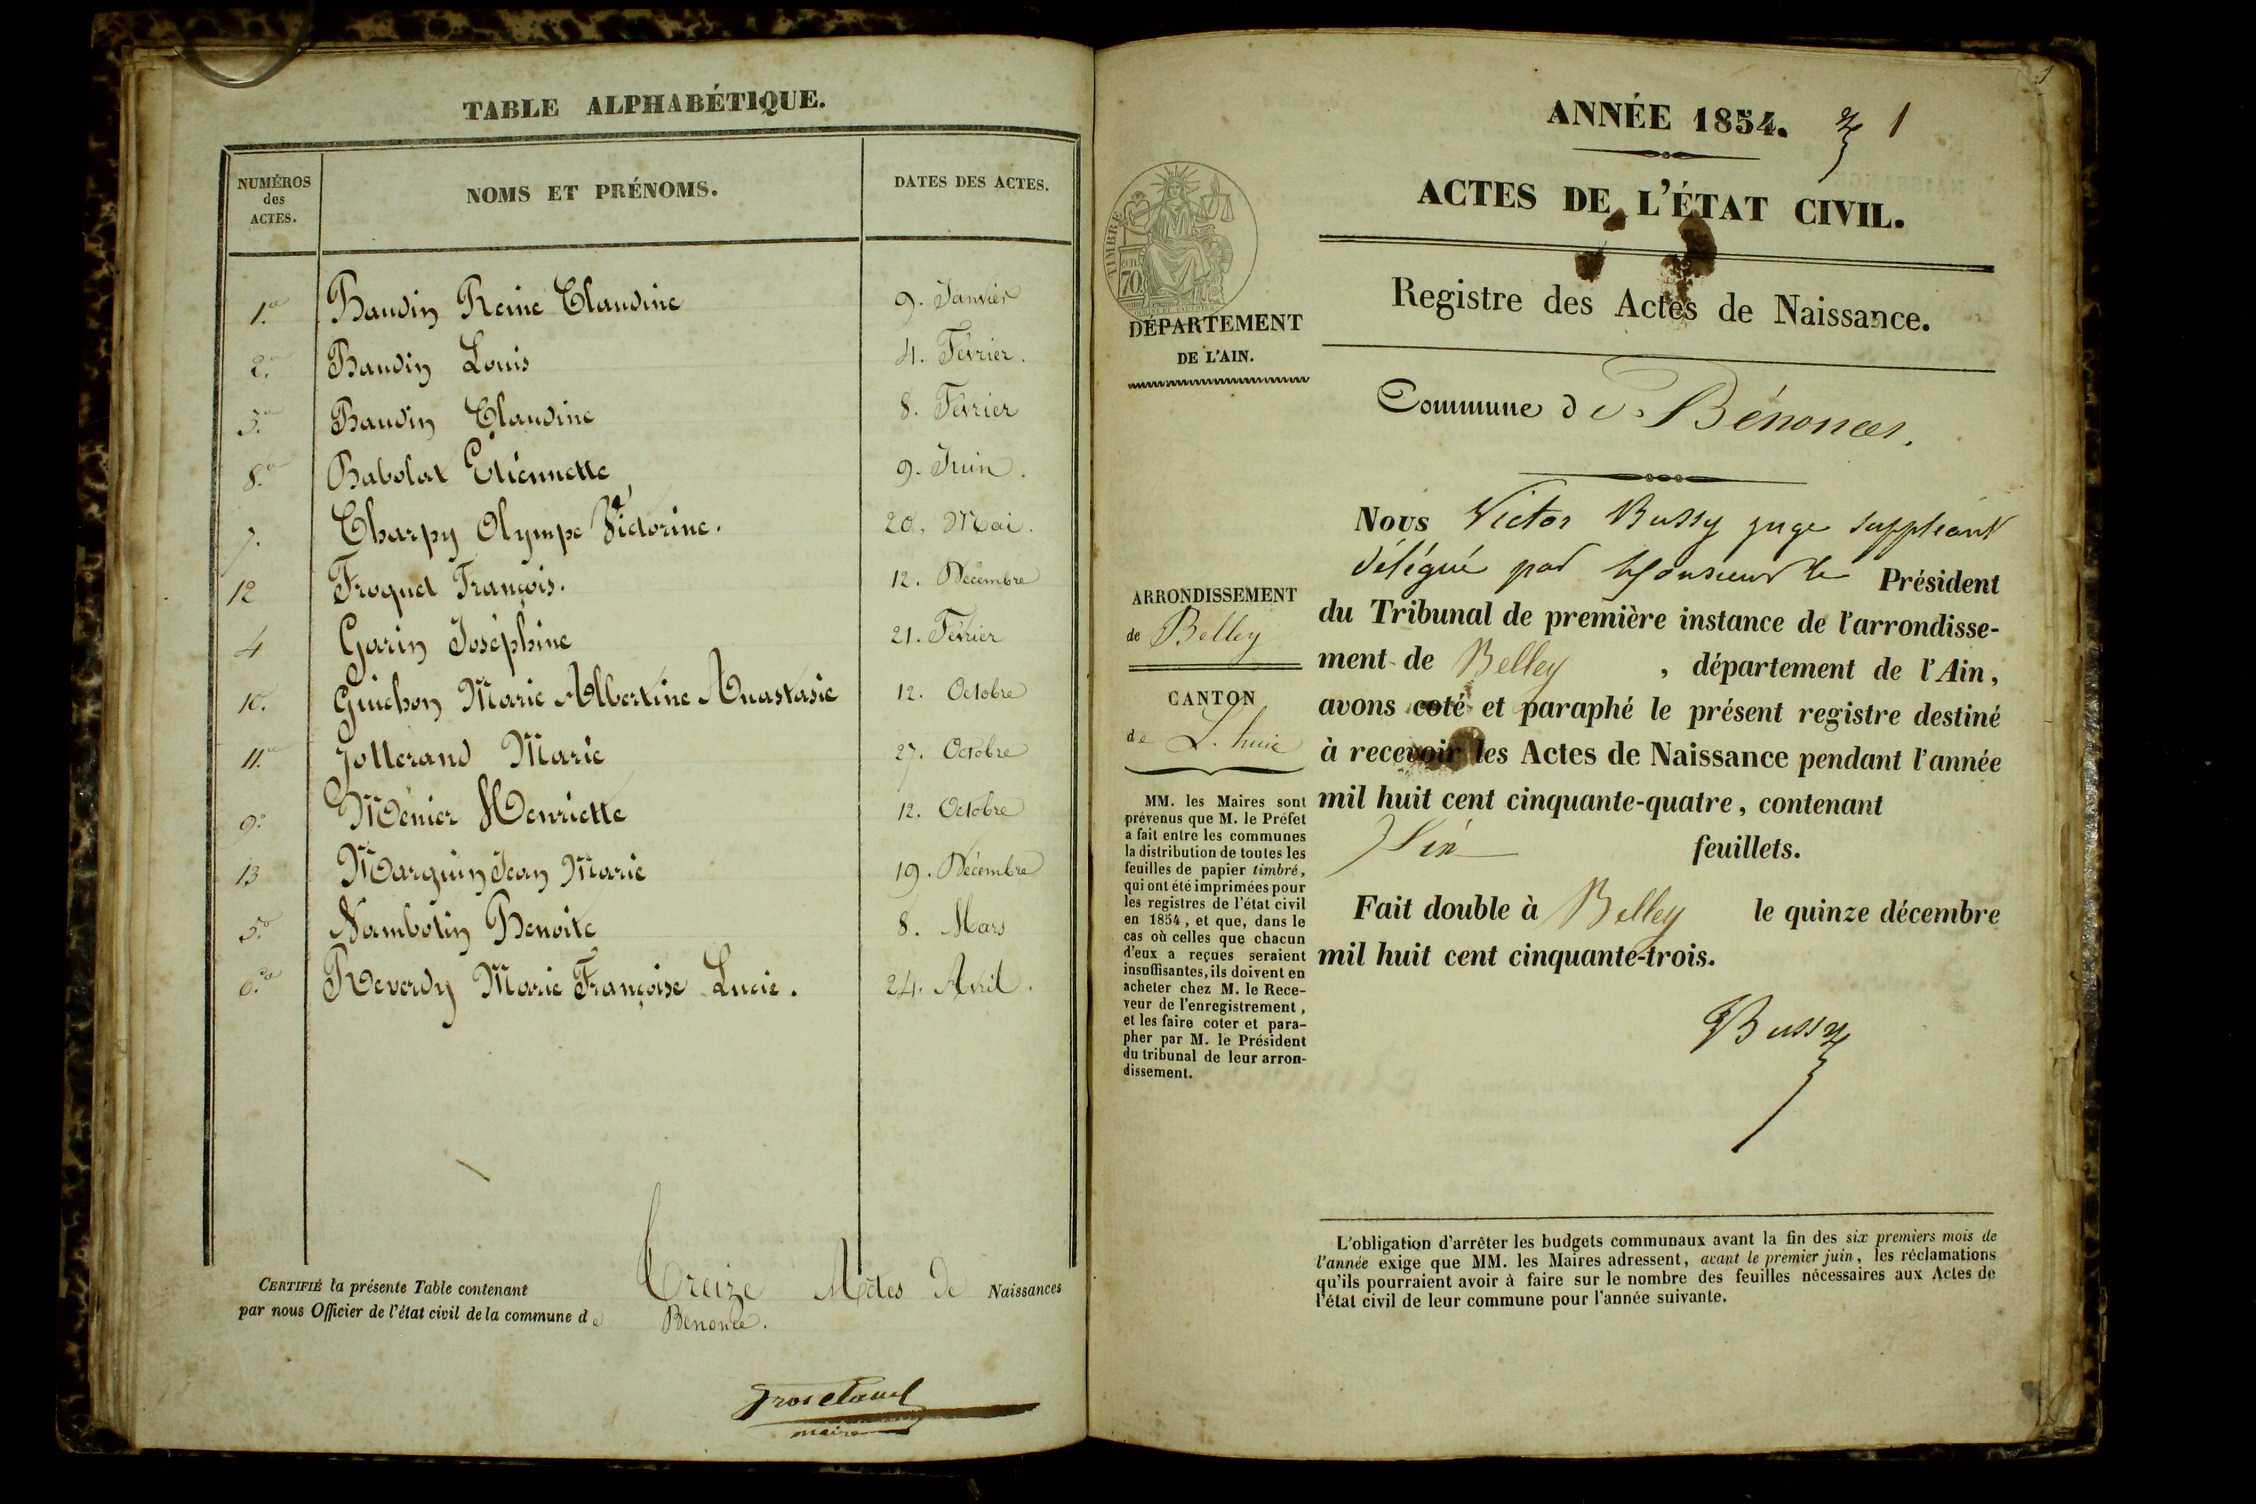 TABLE ALPHABÉTIQUE.
NUMÉROS des ACTES. NOMS ET PRÉNOMS. DATES DES ACTES.
1. Baudin Reine Claudine 9. Janvier
2. Baudin Louis 4. Février.
3. Baudin Claudine 8. Février
8. Babolat Etiennette 9. Juin.
7. Charpy Olympe Victorine. 20. Mai.
12 Froquet François. 12. Décembre
4 Garin Joséphine 21. Février
10. Guichon Marie Albertine Anastasie 12. Octobre
11. Jollerand Marie 27. Octobre
9. Ménier Henriette 12. Octobre
13 Marguin Jean Marie 19. Décembre
5. Nambotin Benoite 8. Mars
6. Reverdy Marie Françoise Lucie. 24. Avril.
CERTIFIÉ la présente Table contenant Treize Actes de Naissances
par nous Officier de l'état civil de la commune de Benonce.
maire
ANNÉE 1854. 1
ACTES DE L'ÉTAT CIVIL.
Registre des Actes de Naissance.
TIMBRE
70
DÉPARTEMENT
DE L'AIN.
Commune de Bénonces.
ARRONDISSEMENT
de Belley
CANTON
de L'huis
MM. les Maires sont
prévenus que M. le Préfet
a fait entre les communes
la distribution de toutes les
feuilles de papier timbré,
qui ont été imprimées pour
les registres de l'état civil
en 1854, et que, dans le
cas où celles que chacun
d'eux a reçues seraient
insuffisantes, ils doivent en
acheter chez M. le Rece-
veur de l'enregistrement,
et les faire coter et para-
pher par M. le Président
du tribunal de leur arron-
dissement.
Nous Victor Bussy juge suppléant
délégué par Monsieur le Président
du Tribunal de première instance de l'arrondisse-
ment de Belley, département de l'Ain,
avons coté et paraphé le présent registre destiné
à recevoir les Actes de Naissance pendant l'année
mil huit cent cinquante-quatre, contenant
Six feuillets.
Fait double à Belley le quinze décembre
mil huit cent cinquante-trois.
Bussy
L'obligation d'arrêter les budgets communaux avant la fin des six premiers mois de
l'année exige que MM. les Maires adressent, avant le premier juin, les réclamations
qu'ils pourraient avoir à faire sur le nombre des feuilles nécessaires aux Actes de
l'état civil de leur commune pour l'année suivante.